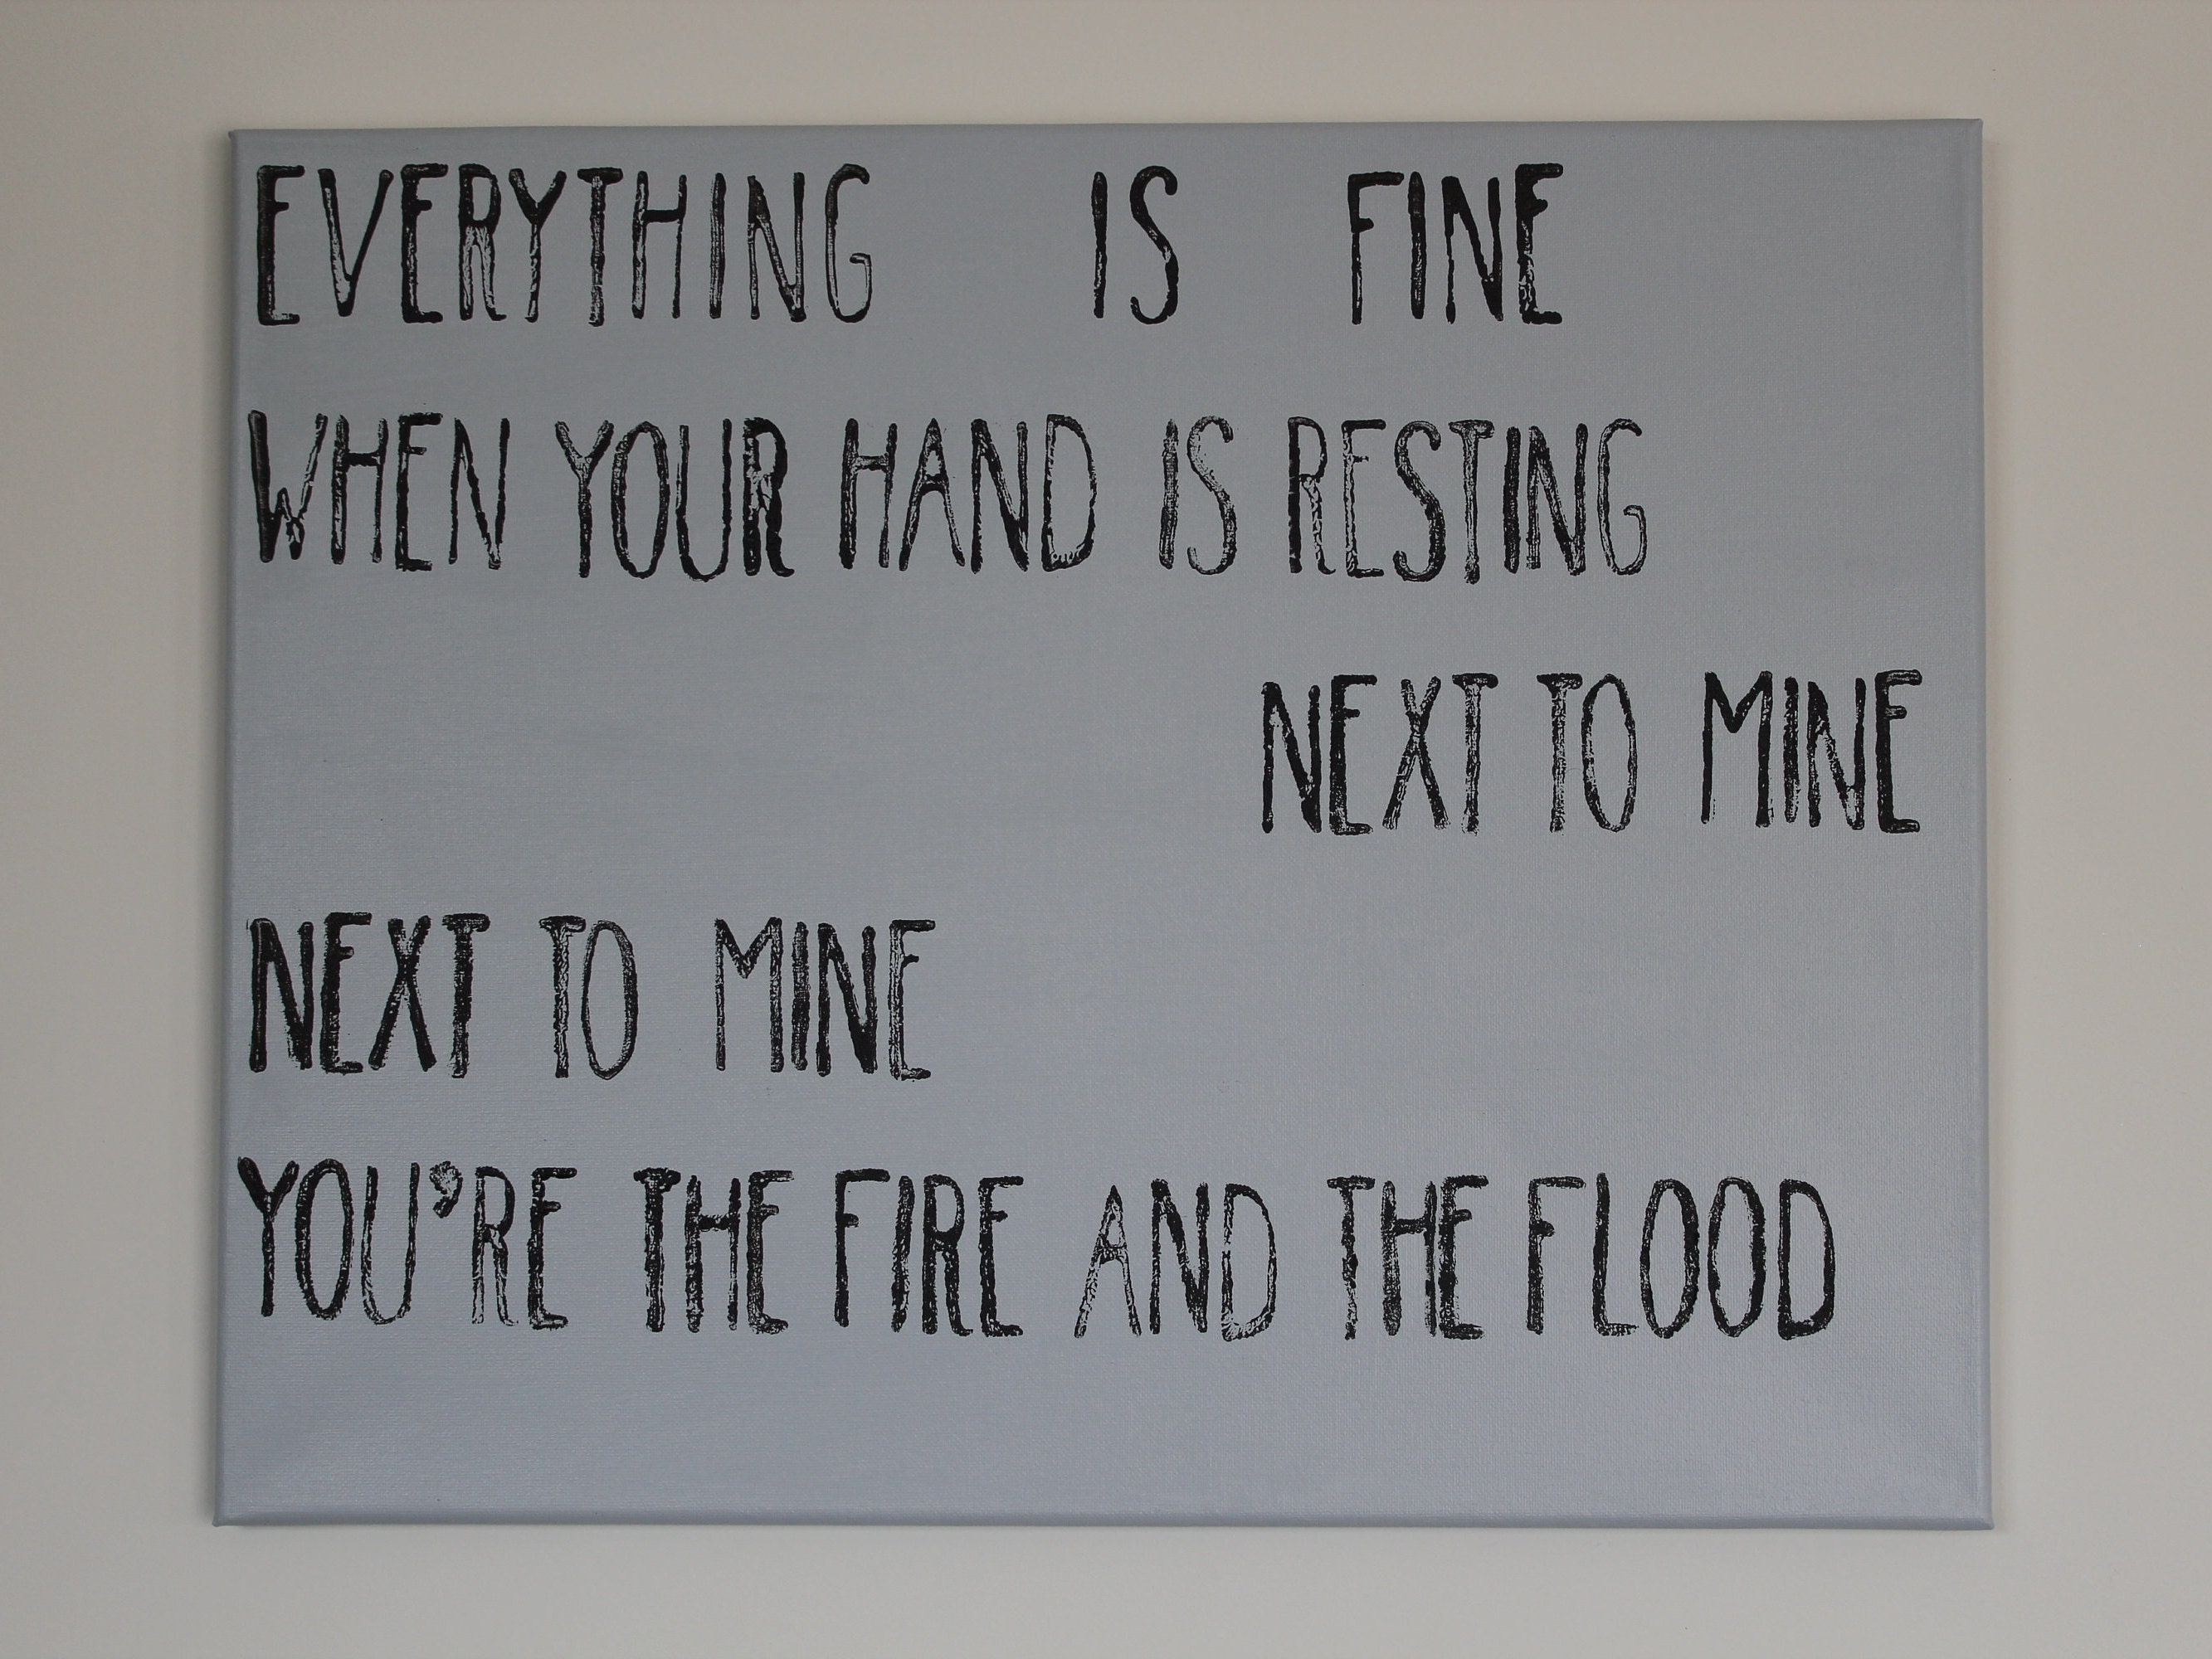 EVERYTHING IS FINE
WHEN YOUR HAND IS RESTING
NEXT TO MINE
NEXT TO MINE
YOU'RE THE FIRE AND THE FLOOD